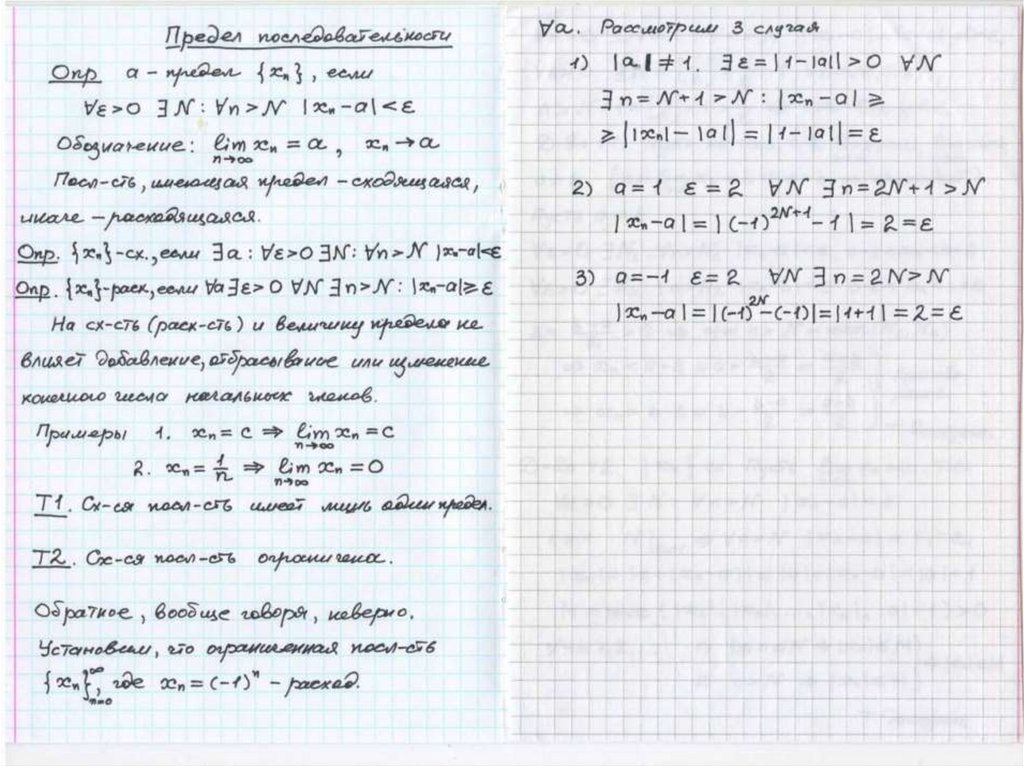 Предел последовательности
Опр a – предел {xₙ}, если
∀ε>0 ∃N: ∀n>N |xₙ–a|<ε
Обозначение: lim xₙ = a, xₙ→a
n→∞
Посл-сть, имеющая предел – сходящаяся,
иначе – расходящаяся.
Опр. {xₙ}-сх., если ∃a: ∀ε>0 ∃N: ∀n>N |xₙ–a|<ε
Опр. {xₙ}-расх, если ∀a ∃ε>0 ∀N ∃n>N: |xₙ–a|≥ε
На сх-сть (расх-сть) и величину предела не
влияет добавление, отбрасывание или изменение
конечного числа начальных членов.
Примеры 1. xₙ = c ⇒ lim xₙ = c
n→∞
2. xₙ = 1/n ⇒ lim xₙ = 0
n→∞
Т1. Сх-ся посл-сть имеет лишь один предел.
Т2. Сх-ся посл-сть ограничена.
Обратное, вообще говоря, неверно.
Установим, что ограниченная посл-сть
{xₙ}^∞_{n=0}, где xₙ = (-1)ⁿ – расход.
∀a. Рассмотрим 3 случая
1) |a| ≠ 1. ∃ε = |1–|a|| > 0 ∀N
∃n = N+1 > N: |xₙ–a| ≥
≥ ||xₙ|–|a|| = |1–|a|| = ε
2) a = 1 ε = 2 ∀N ∃n = 2N+1 > N
|xₙ–a| = |(-1)^{2N+1} – 1| = 2 = ε
3) a = –1 ε = 2 ∀N ∃n = 2N > N
|xₙ–a| = |(-1)^{2N} – (-1)| = |1+1| = 2 = ε